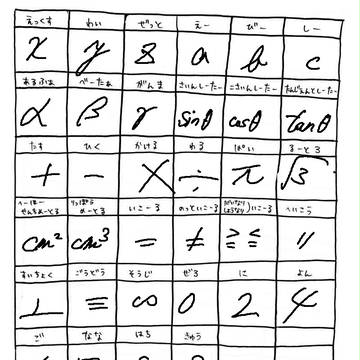 えっくす わい ぜっと えー びー しー
x y z a b c
あるふぁ べーたぁ がんま さいんしーたー こさいんしーたー たんじぇんとしーたー
α β γ sinθ cosθ tanθ
たす ひく かける わる ぱい るーと3
+ − × ÷ π √3
へーほー せんちめーとる りっぽう めーとる いこーる のっといこーる いこーる へいこう
cm² cm³ = ≠ ≧≦ //
すいちょく ごうどう そうじ ぜろ に よん
⊥ ≡ ∽ 0 2 4
ご なな はち きゅう